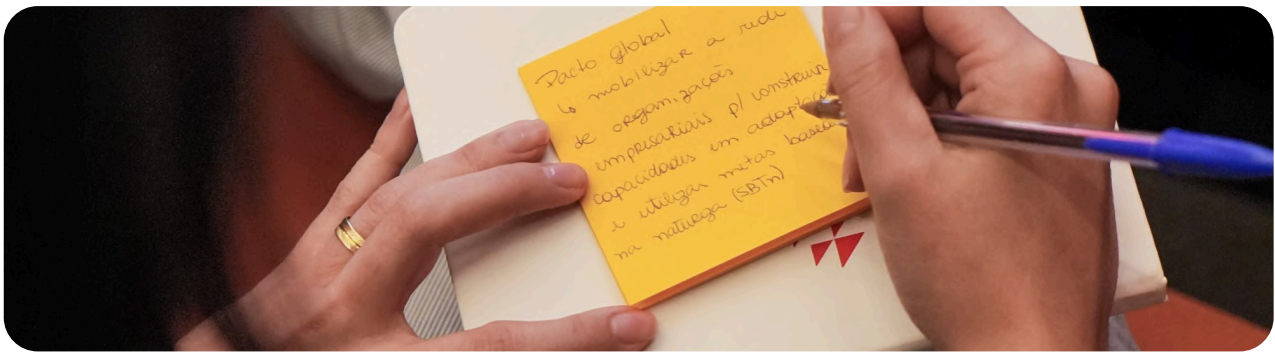 Pacto global
↳ mobilizar a rede
de organizações
empresariais p/ construir
capacidades em adaptação
e utilizar metas basea
na natureza (SBTn)